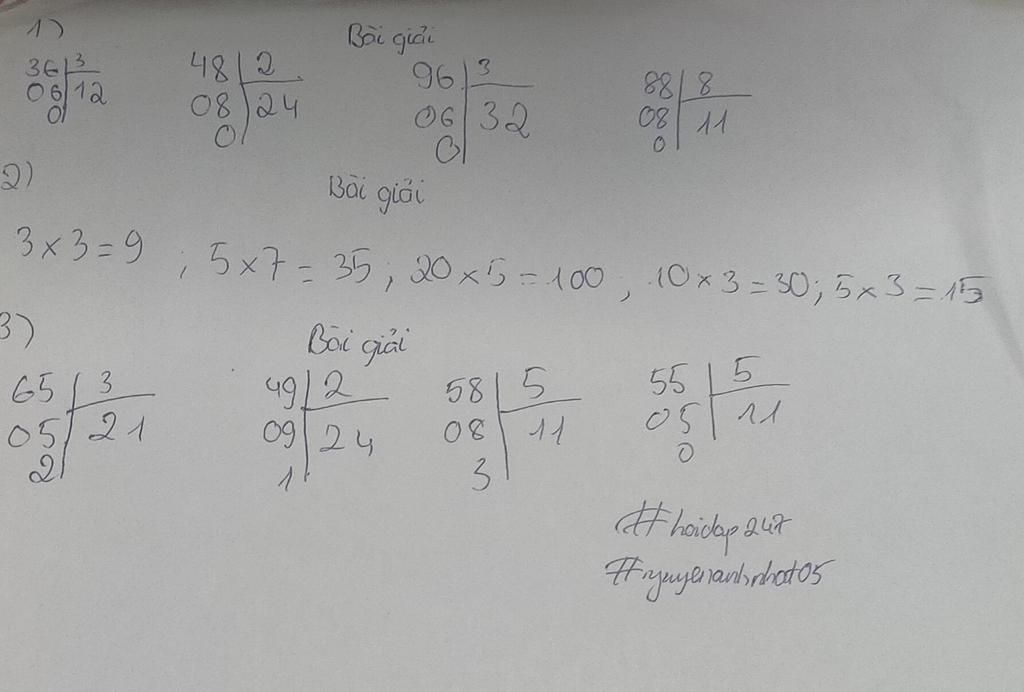 1) Bài giải
36 3 48 2 96 3 88 8
06 12 08 24 06 32 08 11
0 0 0 0
2) Bài giải
3 x 3 = 9 ; 5 x 7 = 35 ; 20 x 5 = 100 , 10 x 3 = 30 ; 5 x 3 = 15
3) Bài giải
65 3 49 2 58 5 55 5
05 21 09 24 08 11 05 11
2 1 3 0
#hoidap247
#nguyenanhnhat05